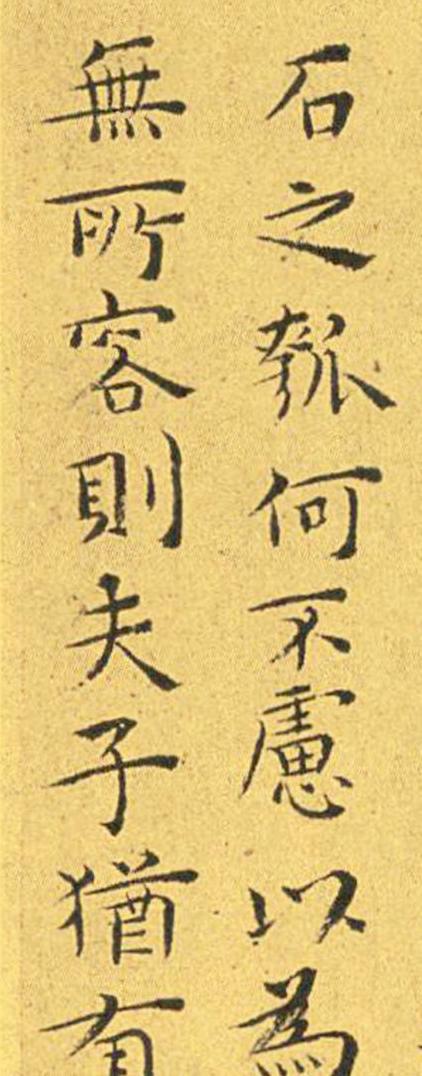 石之瓠何不慮以為
無所容則夫子猶有